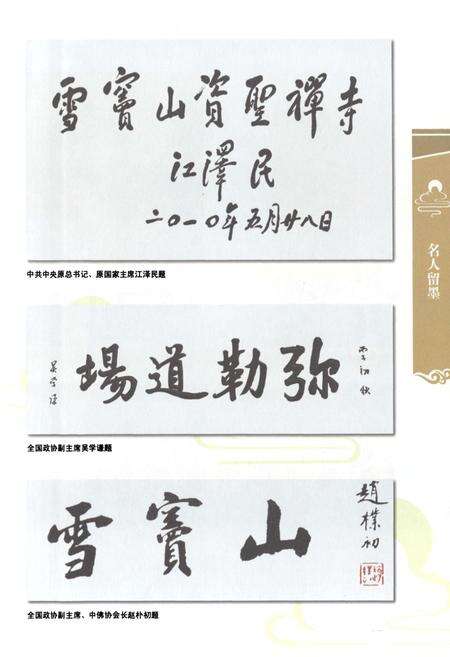 雪竇山資聖禪寺
江澤民
二〇一〇年五月廿八日
中共中央原总书记、原国家主席江泽民题
名人留墨
丙子初秋
弥勒道場
吴学谦
全国政协副主席吴学谦题
雪竇山
趙樸初
全国政协副主席、中佛协会长赵朴初题